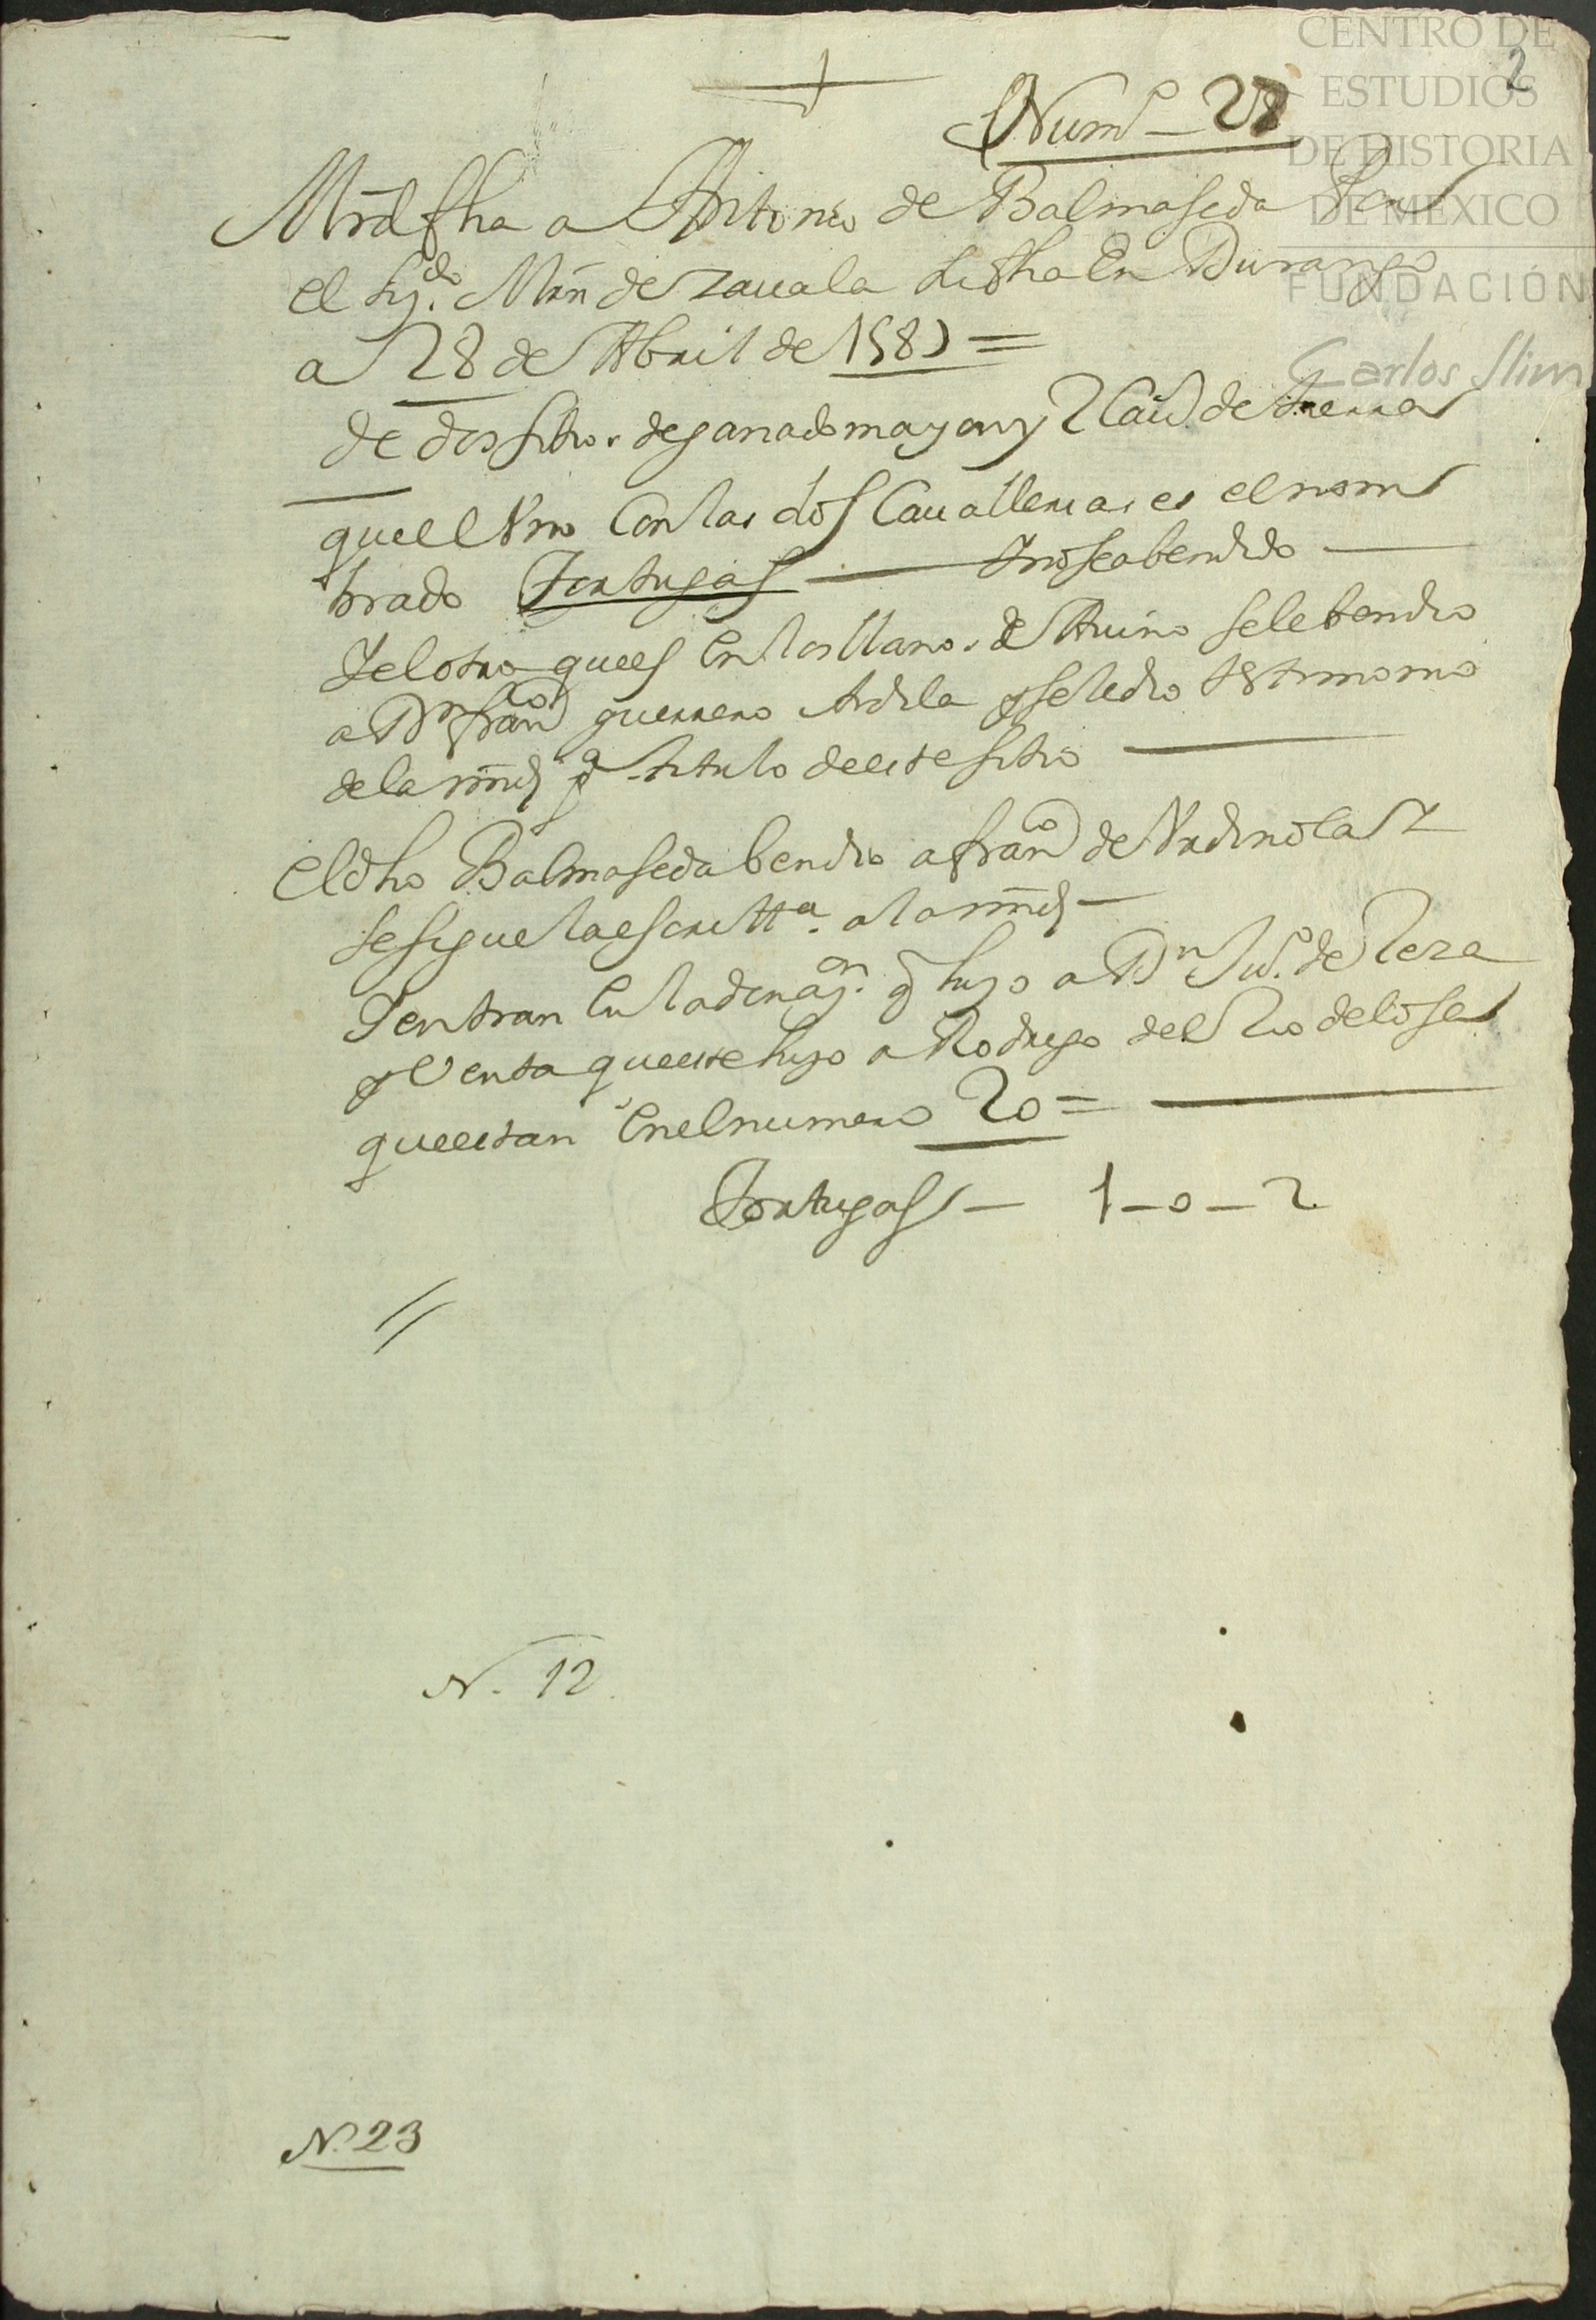 CENTRO DE
ESTUDIOS
DE HISTORIA
DE MEXICO
FUNDACIÓN
Carlos Slim
2
Numº - 28
Mrd fha a Antonio de Balmaseda Por
el Lizdo. Mrn de Zauala fha En Durango
a 28 de Abril de 1585 =
de dos sitios de ganado mayor y 2 Cauª de tierra
que el Vno Con las dos Cauallerias es el nom
brado Tortugas — I no sea bendido —
I el otro que es En los llanos de Auino se le bendio
a Dn franco guerrero Ardila y se le dio testimonio
de la mrd pª titulo de este sitio —
El dho Balmaseda bendio a franco de Vrdinola I
se sigue la escrittª. a la mrd —
I entran En la donaçon. q hizo a Dn Juº. de Leza
y Venta que este hizo a Rodrigo del Rio de losa
que estan En el numero 20 = —
Tortugas — 1 - 0 - 2
N. 12.
N. 23